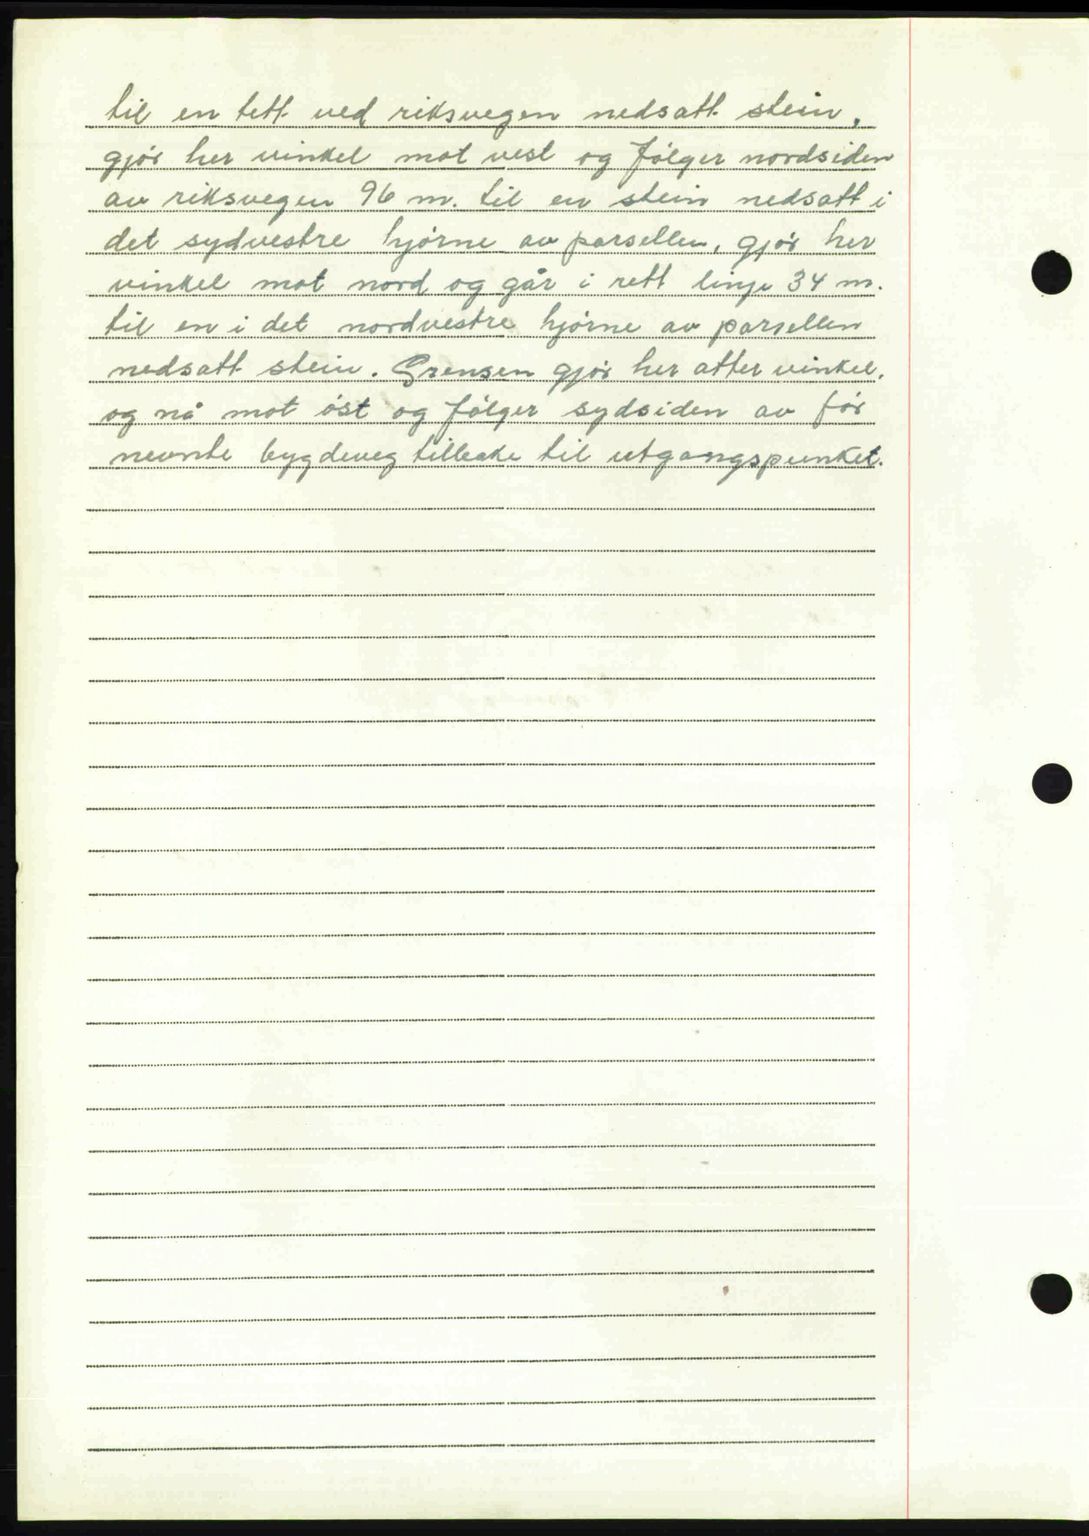 til en tett ved riksvegen nedsatt stein,
gjør her vinkel mot vest og følger nordsiden
av riksvegen 96 m. til en stein nedsatt i
det sydvestre hjørne av parsellen, gjør her
vinkel mot nord og går i rett linje 34 m.
til en i det nordvestre hjørne av parsellen
nedsatt stein. Grensen gjør her atter vinkel,
og nå mot øst og følger sydsiden av før
nevnte bygdeveg tilbake til utgangspunktet.